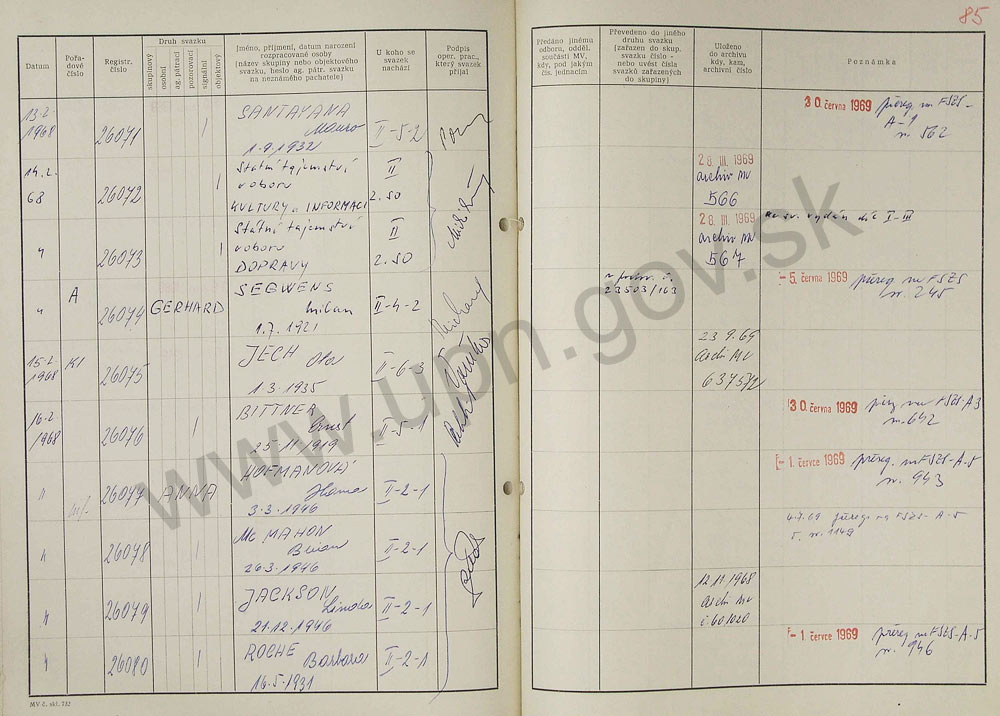 85
Datum
Pořa-
dové
číslo
Registr.
číslo
Druh svazku
skupinový
osobní
ag. pátrací
pozorovací
signální
objektový
Jméno, příjmení, datum narození
rozpracované osoby
(název skupiny nebo objektového
svazku, heslo ag. pátr. svazku
na neznámého pachatele)
U koho se
svazek
nachází
Podpis
oper. prac.,
který svazek
přijal
Předáno jinému
odboru, odděl.
součásti MV,
kdy, pod jakým
čís. jednacím
Převedeno do jiného
druhu svazku
(zařazen do skup.
svazku číslo -
nebo uvést čísla
svazků zařazených
do skupiny)
Uloženo
do archivu
kdy, kam,
archivní číslo
Poznámka
13.2.
1968
26071
SANTAYANA
Mauro
1.9.1932
II-5-2
30. června 1969
přereg. na FSZS-
A-9
n. 562
14.2.
68
26072
Státní tajemství
v oboru
KULTURY a INFORMACÍ
II
2. SO
28. III. 1969
archiv MV
566
"
26073
Státní tajemství
v oboru
DOPRAVY
II
2. SO
28. III. 1969
archiv MV
567
"
A
26074
GERHARD
SEGWENS
Milan
1.7.1921
II-4-2
23503/163
- 5. června 1969
přereg. na FSZS
n. 245
15.2.
1968
KI
26075
JECH Ota
1.3.1935
II-6-3
23.9.69
Archiv MV
637572
16.2.
1968
26076
BITTNER
Ernst
25.11.1919
II-5-1
30. června 1969
FSZS-A-3
n. 642
"
26077
ANNA
HOFMANOVÁ
Hana
3.3.1946
II-2-1
- 1. července 1969
přereg. na FSZS-A-5
n. 943
"
26078
Mc MAHON
Brian
26.3.1946
II-2-1
4.7.69 přereg na FSZS-A-5
n. 1149
"
26079
JACKSON
Linda
21.12.1946
II-2-1
12.11.1968
Archiv MV
č. 601020
"
26080
ROCHE Barbara
16.5.1931
II-2-1
- 1. července 1969
přereg. na FSZS-A-5
n. 946
MV č. skl. 732
www.upn.gov.sk